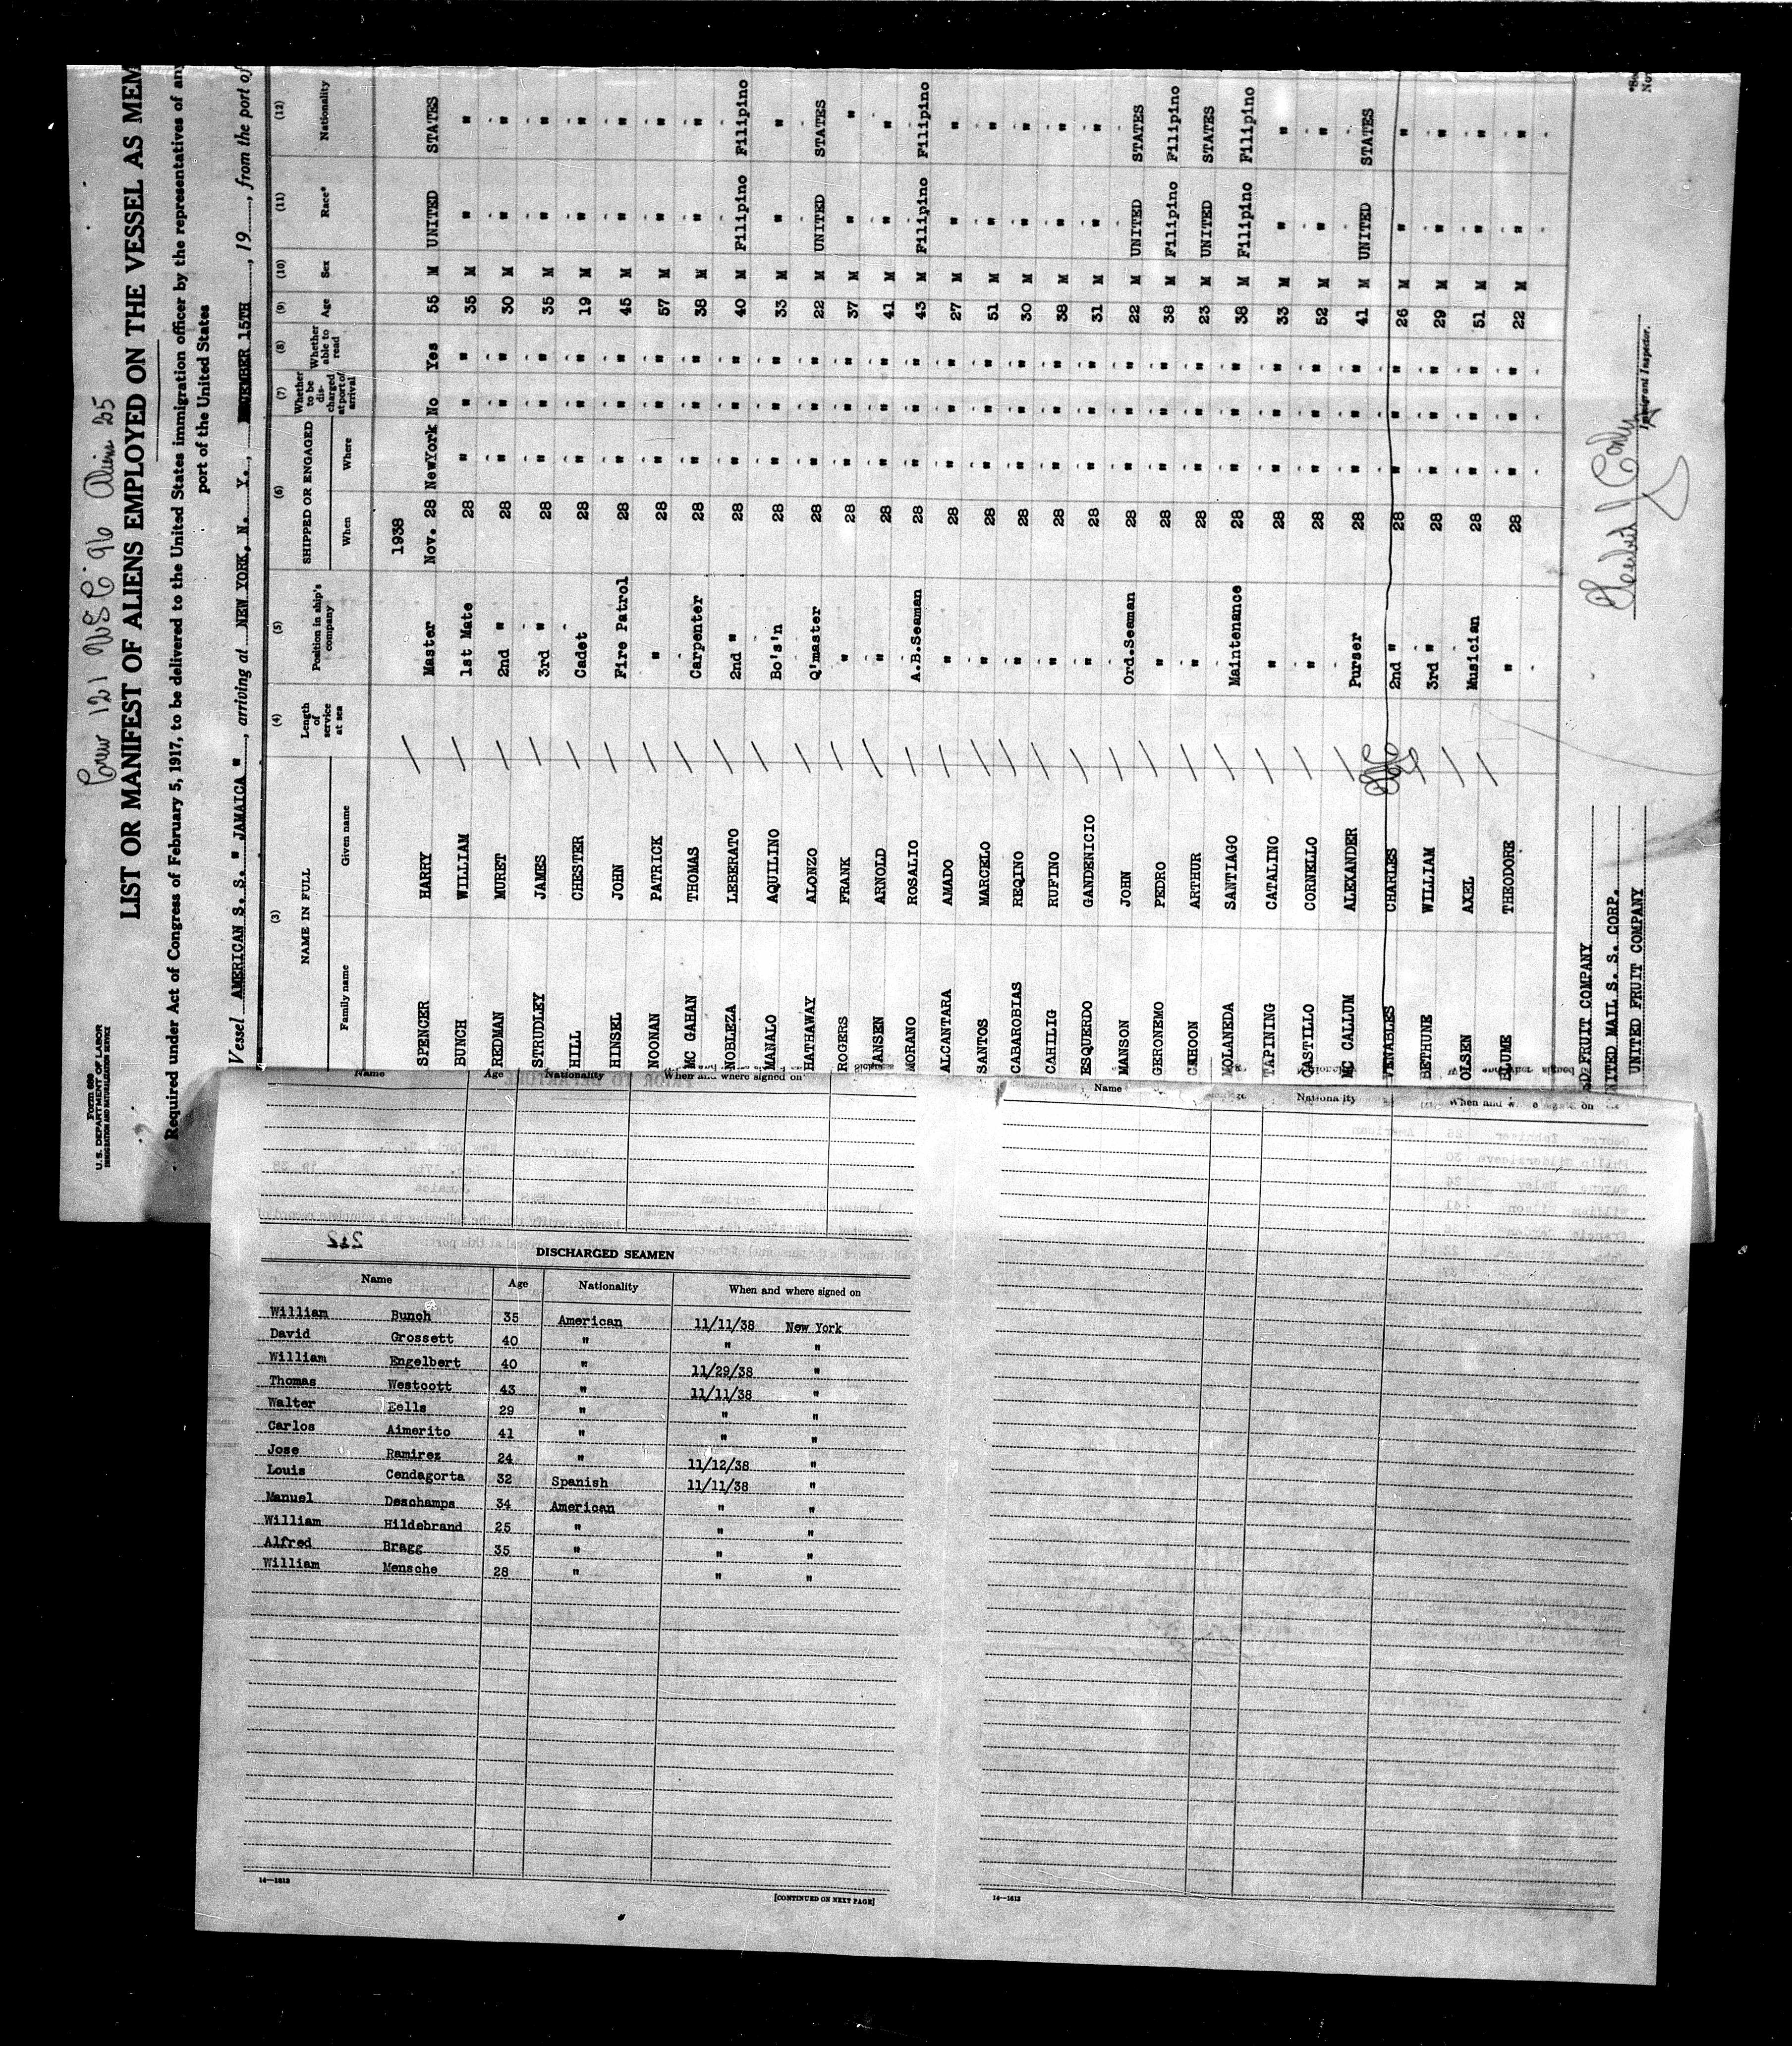 Form 689
U. S. DEPARTMENT OF LABOR
IMMIGRATION AND NATURALIZATION SERVICE
Crew 121 96 Aliens 25
LIST OR MANIFEST OF ALIENS EMPLOYED ON THE VESSEL AS MEM
Required under Act of Congress of February 5, 1917, to be delivered to the United States immigration officer by the representatives of any
port of the United States
Vessel AMERICAN S. S. " JAMAICA ", arriving at NEW YORK, N. Y., DECEMBER 15TH, 19 , from the port of
(3) (4) (5) (6) (7) (8) (9) (10) (11) (12)
NAME IN FULL Length of service at sea Position in ship's company SHIPPED OR ENGAGED Whether to be discharged at port of arrival Whether able to read Age Sex Race* Nationality
Family name Given name When Where
1938
SPENCER HARRY Master Nov. 28 NewYork No Yes 55 M UNITED STATES
BUNCH WILLIAM 1st Mate 28 " " " 35 M " "
REDMAN MURET 2nd " 28 " " " 30 M " "
STRUDLEY JAMES 3rd " 28 " " " 35 M " "
HILL CHESTER Cadet 28 " " " 19 M " "
HINSEL JOHN Fire Patrol 28 " " " 45 M " "
NOONAN PATRICK " 28 " " " 57 M " "
MC GAHAN THOMAS Carpenter 28 " " " 38 M " "
NOBLEZA LEBERATO 2nd " 28 " " " 40 M Filipino Filipino
MANALO AQUILINO Bo's'n 28 " " " 33 M " "
HATHAWAY ALONZO Q'master 28 " " " 22 M UNITED STATES
ROGERS FRANK " 28 " " " 37 M " "
JANSEN ARNOLD " 28 " " " 41 M " "
MORANO ROSALIO A.B.Seaman 28 " " " 43 M Filipino Filipino
ALCANTARA AMADO " 28 " " " 27 M " "
SANTOS MARCELO " 28 " " " 51 M " "
CABAROBIAS REQINO " 28 " " " 30 M " "
CAHILIG RUFINO " 28 " " " 38 M " "
ESQUERDO GANDENICIO " 28 " " " 31 M " "
MANSON JOHN Ord.Seaman 28 " " " 22 M UNITED STATES
GERONEMO PEDRO " 28 " " " 38 M Filipino Filipino
CAHOON ARTHUR " 28 " " " 23 M UNITED STATES
MOLANEDA SANTIAGO Maintenance 28 " " " 38 M Filipino Filipino
TAPINING CATALINO " 28 " " " 33 M " "
CASTILLO CORNELLO " 28 " " " 52 M " "
MC CALLUM ALEXANDER Purser 28 " " " 41 M UNITED STATES
VENABLES CHARLES 2nd " 28 " " " 26 M " "
BETHUNE WILLIAM 3rd " 28 " " " 29 M " "
OLSEN AXEL Musician 28 " " " 51 M " "
BLUME THEODORE " 28 " " " 22 M " "
D FRUIT COMPANY
NITED MAIL S. S. CORP.
UNITED FRUIT COMPANY
Immigrant Inspector.
Name Age Nationality When and where signed on
212
DISCHARGED SEAMEN
Name Age Nationality When and where signed on
William Bunch 35 American 11/11/38 New York
David Grossett 40 " " "
William Engelbert 40 " 11/29/38 "
Thomas Westcott 43 " 11/11/38 "
Walter Eells 29 " " "
Carlos Aimerito 41 " " "
Jose Ramirez 24 " 11/12/38 "
Louis Cendagorta 32 Spanish 11/11/38 "
Manuel Deschamps 34 American " "
William Hildebrand 25 " " "
Alfred Bragg 35 " " "
William Mensche 28 " " "
14—1613
[CONTINUED ON NEXT PAGE]
Name Nationality When and where signed on
14—1613